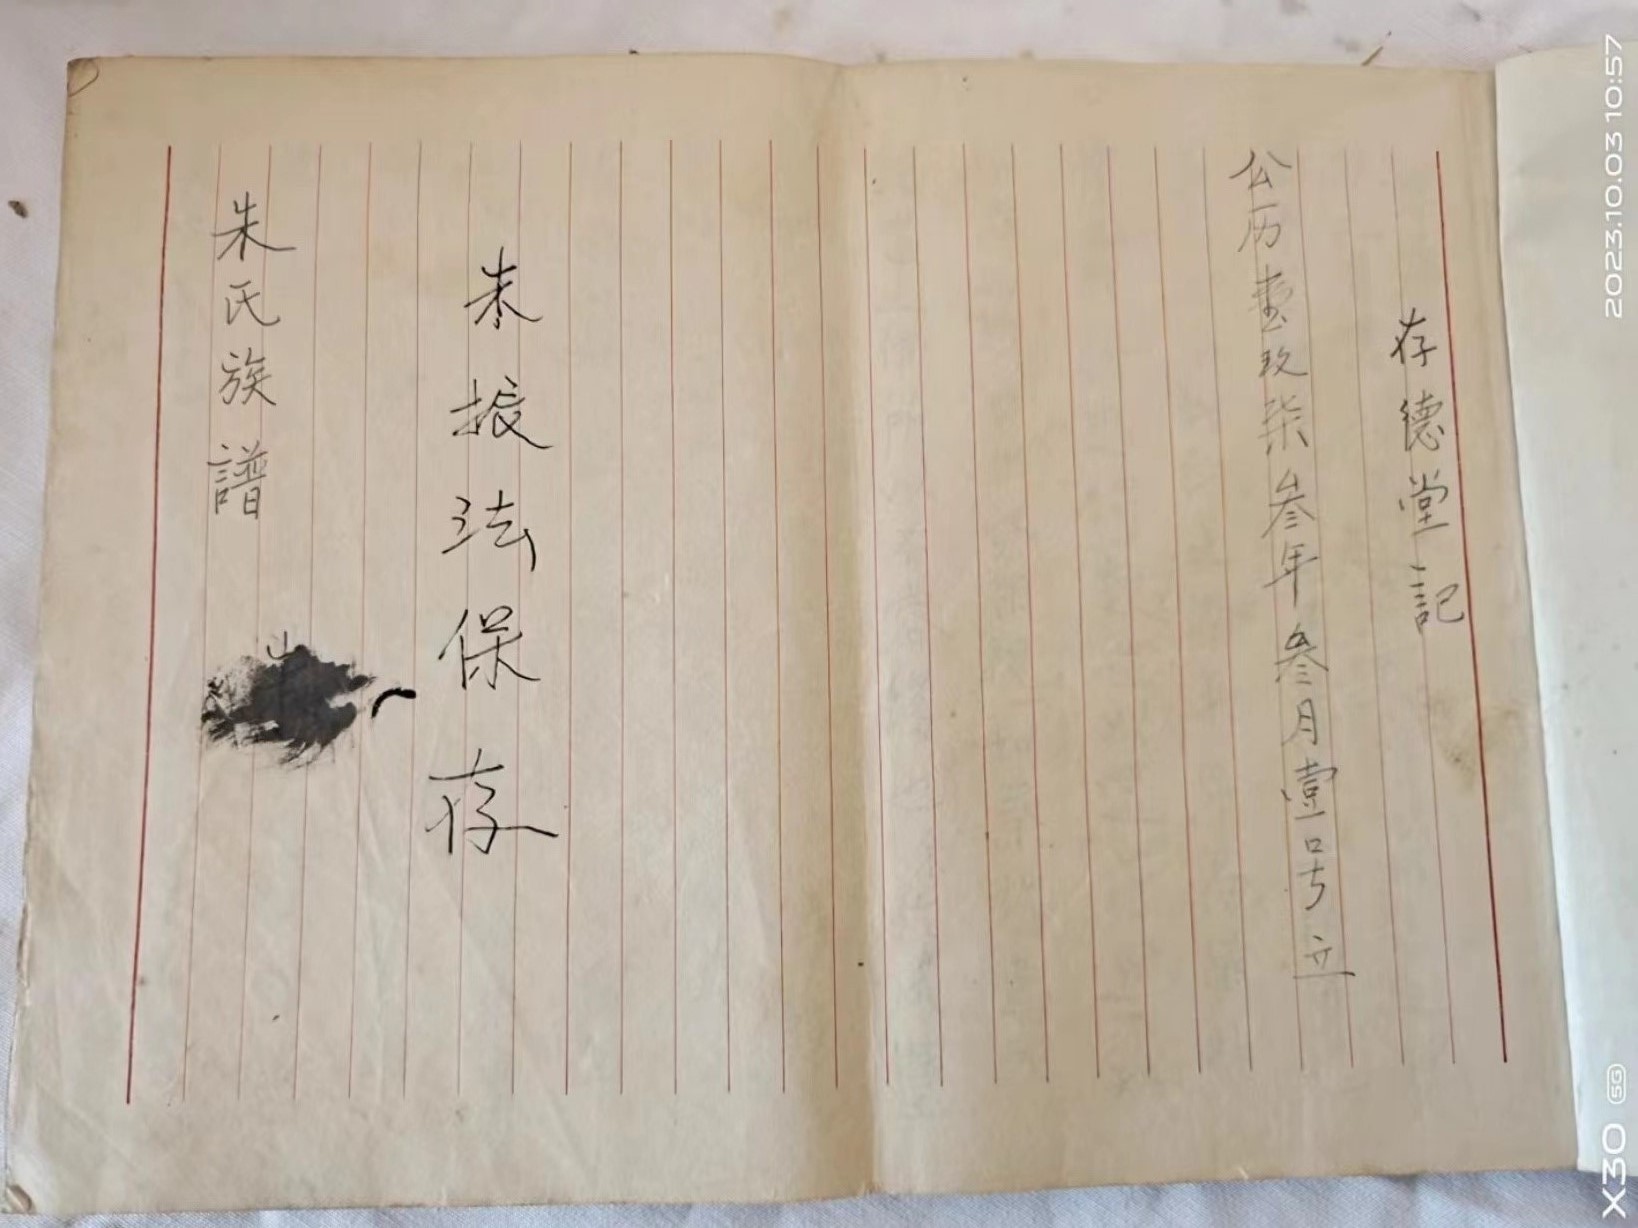 存德堂記
公历壹玖柒叁年叁月壹号立
朱振法保存
朱氏族譜
山
2023.10.03 10:57
X30 5G